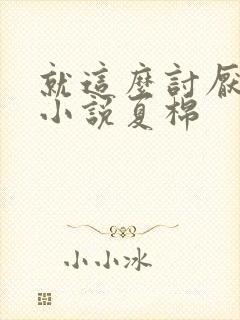 就這麼討厭
小說夏棉
小小冰